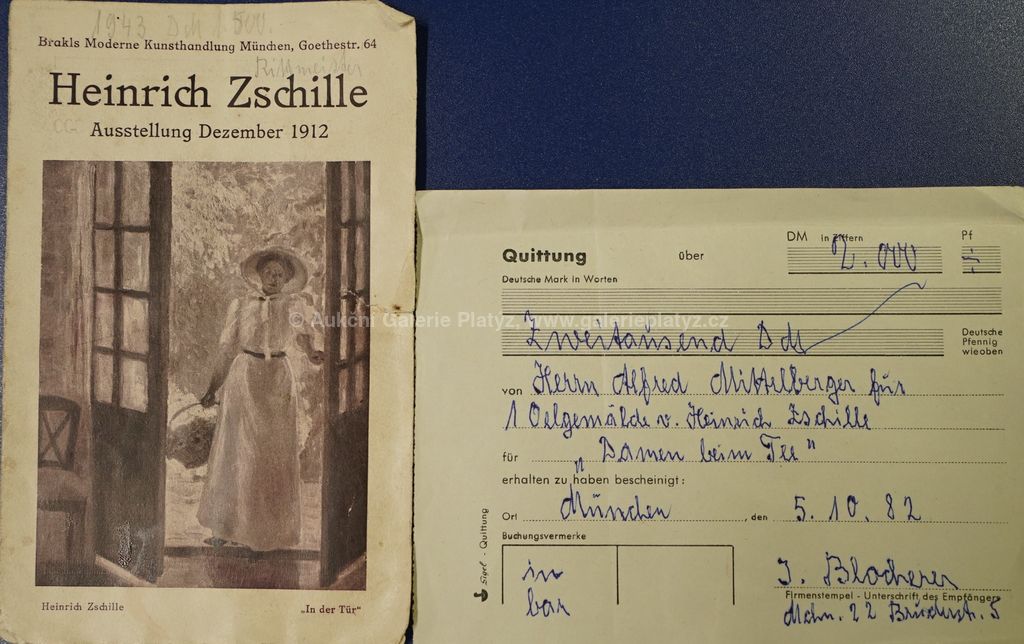 1943 DM 1.500.
Brakls Moderne Kunsthandlung München, Goethestr. 64
Rittmeister
Heinrich Zschille
Ausstellung Dezember 1912
Heinrich Zschille
„In der Tür"
Quittung über
DM in Ziffern 2.000 Pf
Deutsche Mark in Worten
© Aukční Galerie Platýz, www.galerieplatyz.cz
Zweitausend DM
Deutsche
Pfennig
wieoben
von Herrn Alfred Mittelberger für
1 Oelgemälde v. Heinrich Zschille
für „Damen beim Tee"
erhalten zu haben bescheinigt:
Ort München, den 5. 10. 82
Buchungsvermerke
in
bar
J. Blocherer
Firmenstempel - Unterschrift des Empfängers
Mchn. 22 Bruderstr. 5
Sigel - Quittung